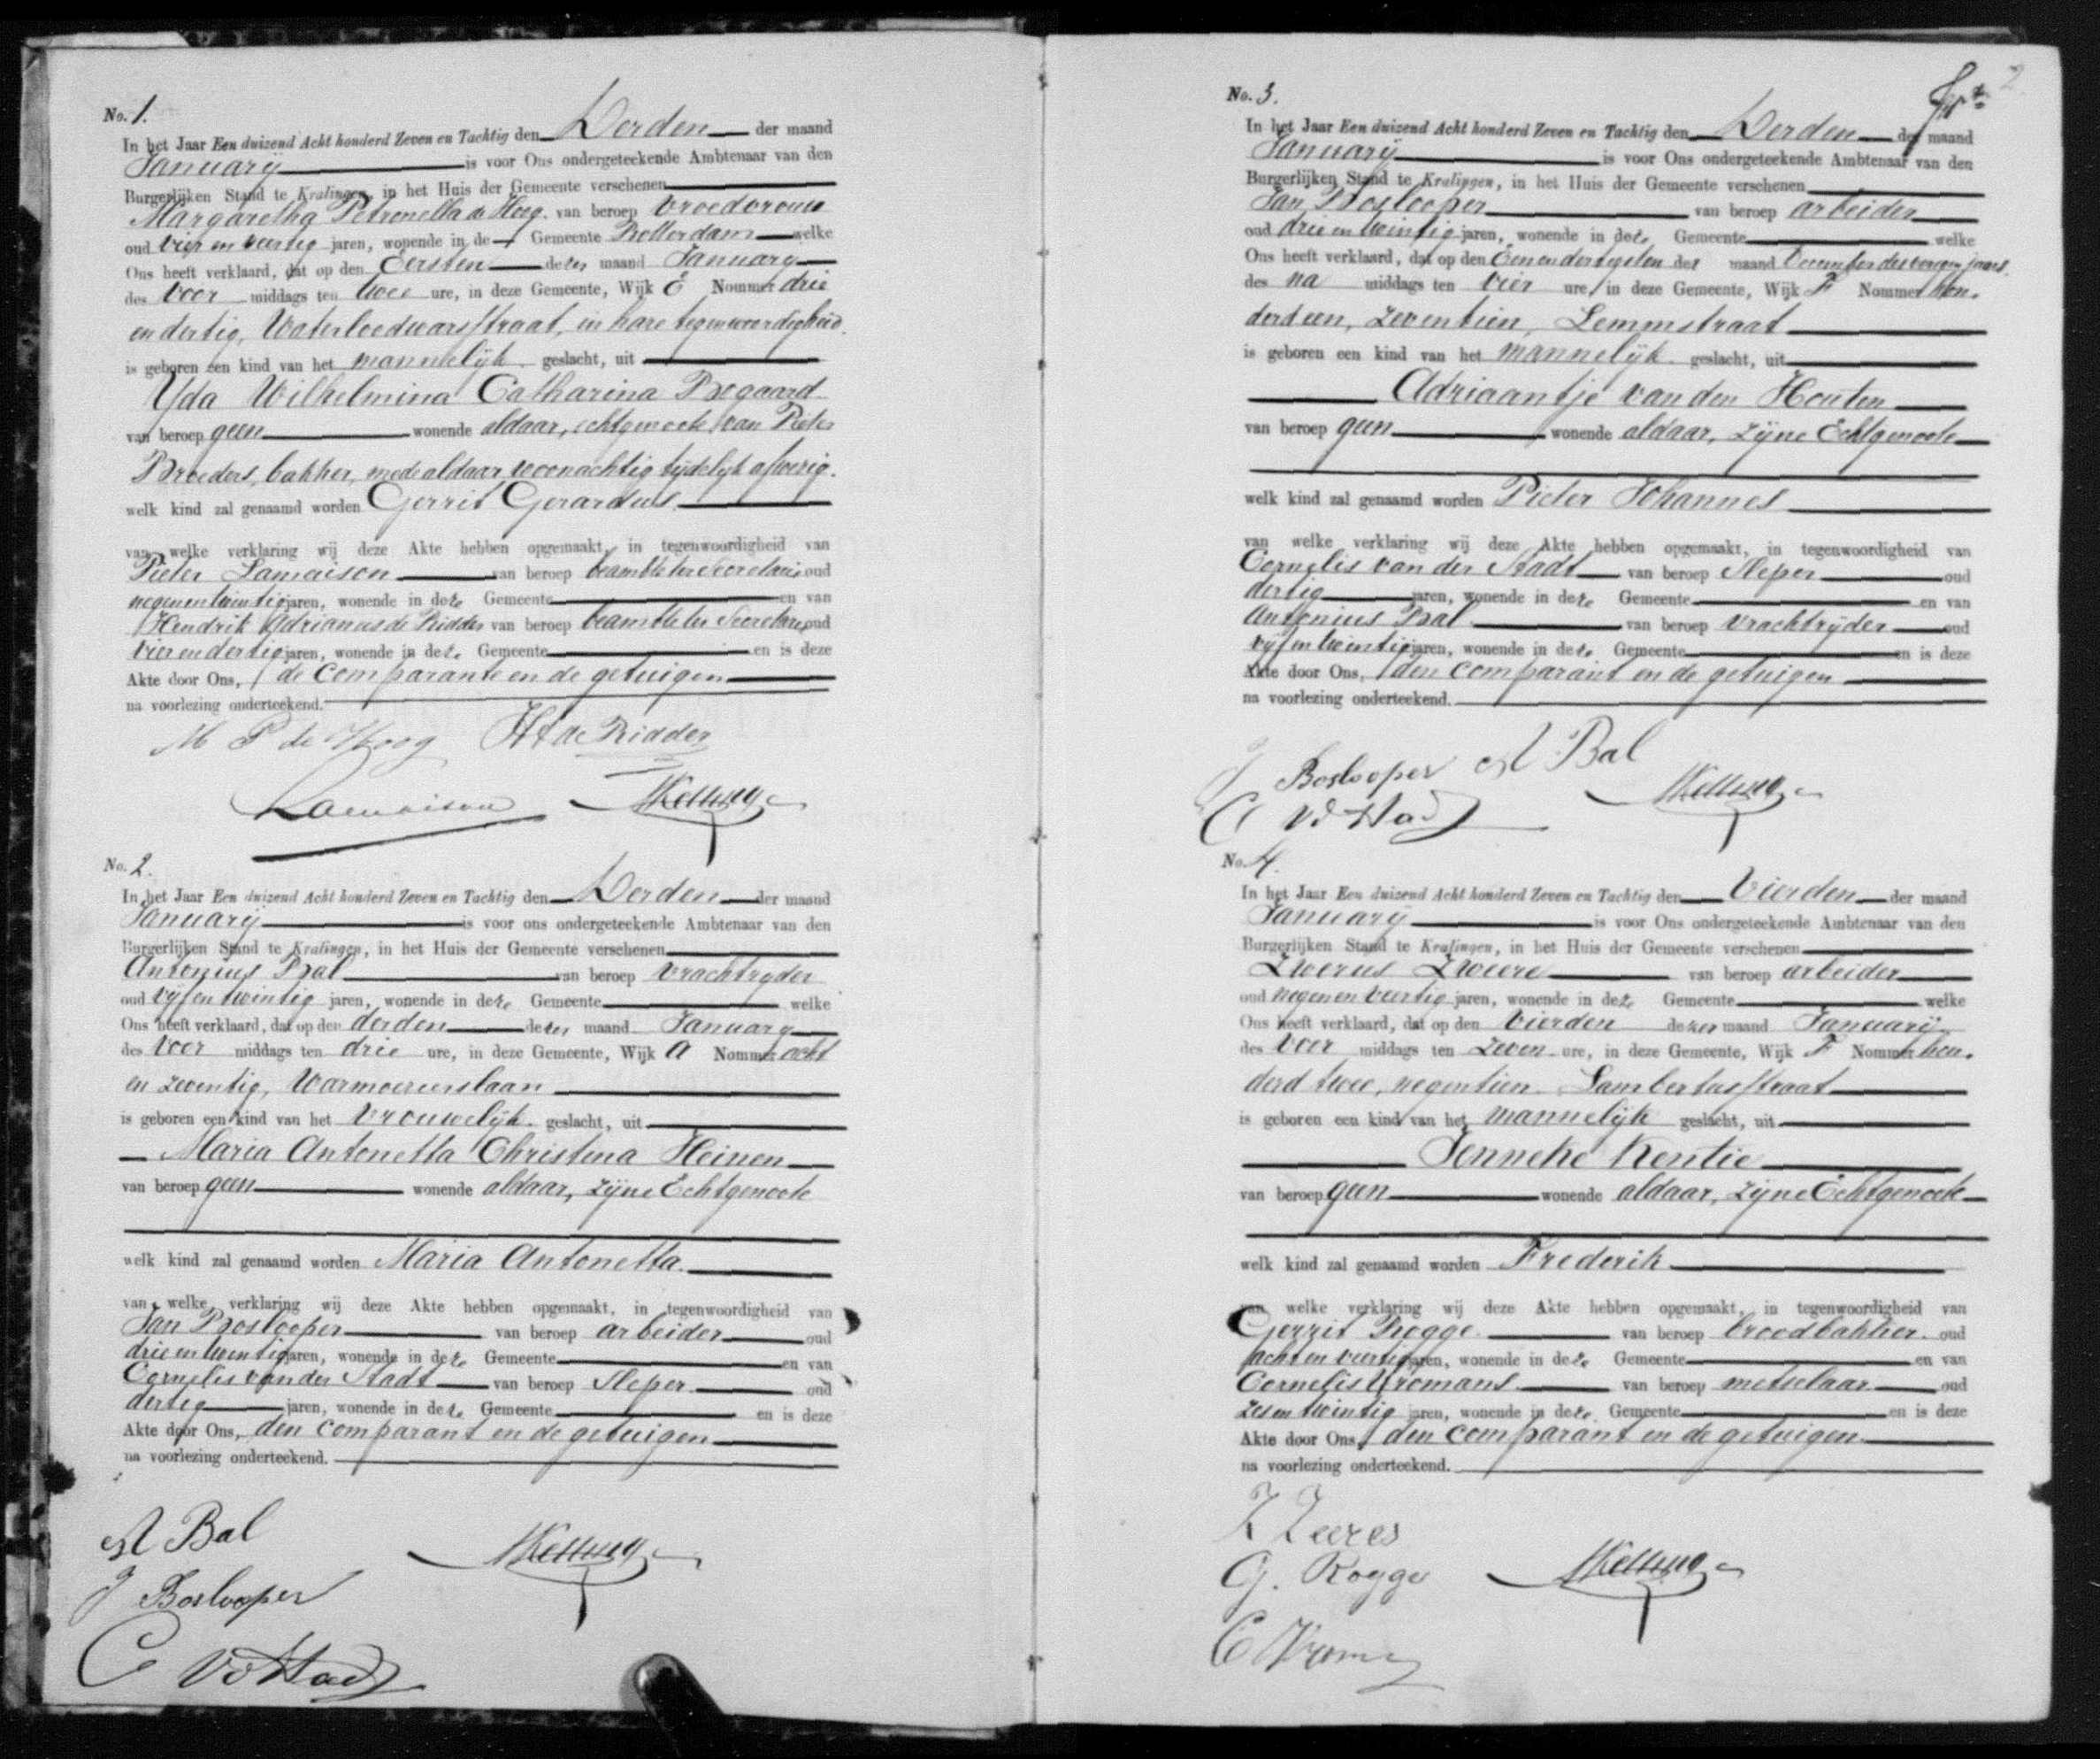 No. 1.
In het Jaar Een duizend Acht honderd Zeven en Tachtig den Derden der maand
January is voor Ons ondergeteekende Ambtenaar van den
Burgerlijken Stand te Kralingen, in het Huis der Gemeente verschenen
Margaretha Petronella de Hoog van beroep vroedvrouw
oud vier en veertig jaren, wonende in de Gemeente Rotterdam welke
Ons heeft verklaard, dat op den Eersten dezer maand January
des Voor middags ten twee ure, in deze Gemeente, Wijk E Nommer drie
en dertig, Waterloodwarsstraat, in hare tegenwoordigheid
is geboren een kind van het mannelijk geslacht, uit
Yda Wilhelmina Catharina Bogaard
van beroep geen wonende aldaar, echtgenoote van Pieter
Broeders, bakker, mede aldaar woonachtig tijdelijk afwezig.
welk kind zal genaamd worden Gerrit Gerardus
van welke verklaring wij deze Akte hebben opgemaakt, in tegenwoordigheid van
Pieter Lamaison van beroep beambte ter Secretarie oud
negen en twintig jaren, wonende in deze Gemeente en van
Hendrik Adrianus de Ridder van beroep beambte ter Secretarie oud
vier en dertig jaren, wonende in deze Gemeente en is deze
Akte door Ons, de comparante en de getuigen
na voorlezing onderteekend.
M P de Hoog HA de Ridder
Lamaison
No. 2.
In het Jaar Een duizend Acht honderd Zeven en Tachtig den Derden der maand
January is voor ons ondergeteekende Ambtenaar van den
Burgerlijken Stand te Kralingen, in het Huis der Gemeente verschenen
Antonius Bal van beroep vrachtryder
oud vijf en twintig jaren, wonende in deze Gemeente welke
Ons heeft verklaard, dat op den derden dezer maand January
des Voor middags ten drie ure, in deze Gemeente, Wijk A Nommer acht
en zeventig, Warmoezierslaan
is geboren een kind van het vrouwelijk geslacht, uit
Maria Antonetta Christina Heinen
van beroep geen wonende aldaar, zijne Echtgenoote
welk kind zal genaamd worden Maria Antonetta
van welke verklaring wij deze Akte hebben opgemaakt, in tegenwoordigheid van
Jan Boslooper van beroep arbeider oud
drie en twintig jaren, wonende in deze Gemeente en van
Cornelis van der Stadt van beroep Sleper oud
dertig jaren, wonende in deze Gemeente en is deze
Akte door Ons, den comparant en de getuigen
na voorlezing onderteekend.
A Bal
J Boslooper
C vd Stadt
No. 3.
2
In het Jaar Een duizend Acht honderd Zeven en Tachtig den Derden der maand
January is voor Ons ondergeteekende Ambtenaar van den
Burgerlijken Stand te Kralingen, in het Huis der Gemeente verschenen
Jan Boslooper van beroep arbeider
oud drie en twintig jaren, wonende in deze Gemeente welke
Ons heeft verklaard, dat op den Een en dertigsten der maand December des vorigen jaars
des na middags ten vier ure, in deze Gemeente, Wijk F Nommer hon-
derd een, zeventien, Lemmstraat
is geboren een kind van het mannelijk geslacht, uit
Adriaantje van den Houten
van beroep geen wonende aldaar, zijne Echtgenoote
welk kind zal genaamd worden Pieter Johannes
van welke verklaring wij deze Akte hebben opgemaakt, in tegenwoordigheid van
Cornelis van der Stadt van beroep Sleper oud
dertig jaren, wonende in deze Gemeente en van
Antonius Bal van beroep vrachtryder oud
vijf en twintig jaren, wonende in deze Gemeente en is deze
Akte door Ons, den comparant en de getuigen
na voorlezing onderteekend.
J Boslooper A Bal
C vd Stadt
No. 4.
In het Jaar Een duizend Acht honderd Zeven en Tachtig den Vierden der maand
January is voor Ons ondergeteekende Ambtenaar van den
Burgerlijken Stand te Kralingen, in het Huis der Gemeente verschenen
van beroep arbeider
oud negen en veertig jaren, wonende in deze Gemeente welke
Ons heeft verklaard, dat op den Vierden dezer maand January
des Voor middags ten zeven ure, in deze Gemeente, Wijk F Nommer hon-
derd twee, negentien Lambertusstraat
is geboren een kind van het mannelijk geslacht, uit
Jenneke Kentie
van beroep geen wonende aldaar, zijne Echtgenoote
welk kind zal genaamd worden Frederik
van welke verklaring wij deze Akte hebben opgemaakt, in tegenwoordigheid van
Gerrit Rogge van beroep broodbakker oud
acht en veertig jaren, wonende in deze Gemeente en van
Cornelis Vromans van beroep metselaar oud
zes en twintig jaren, wonende in deze Gemeente en is deze
Akte door Ons, den comparant en de getuigen
na voorlezing onderteekend.
G. Rogge